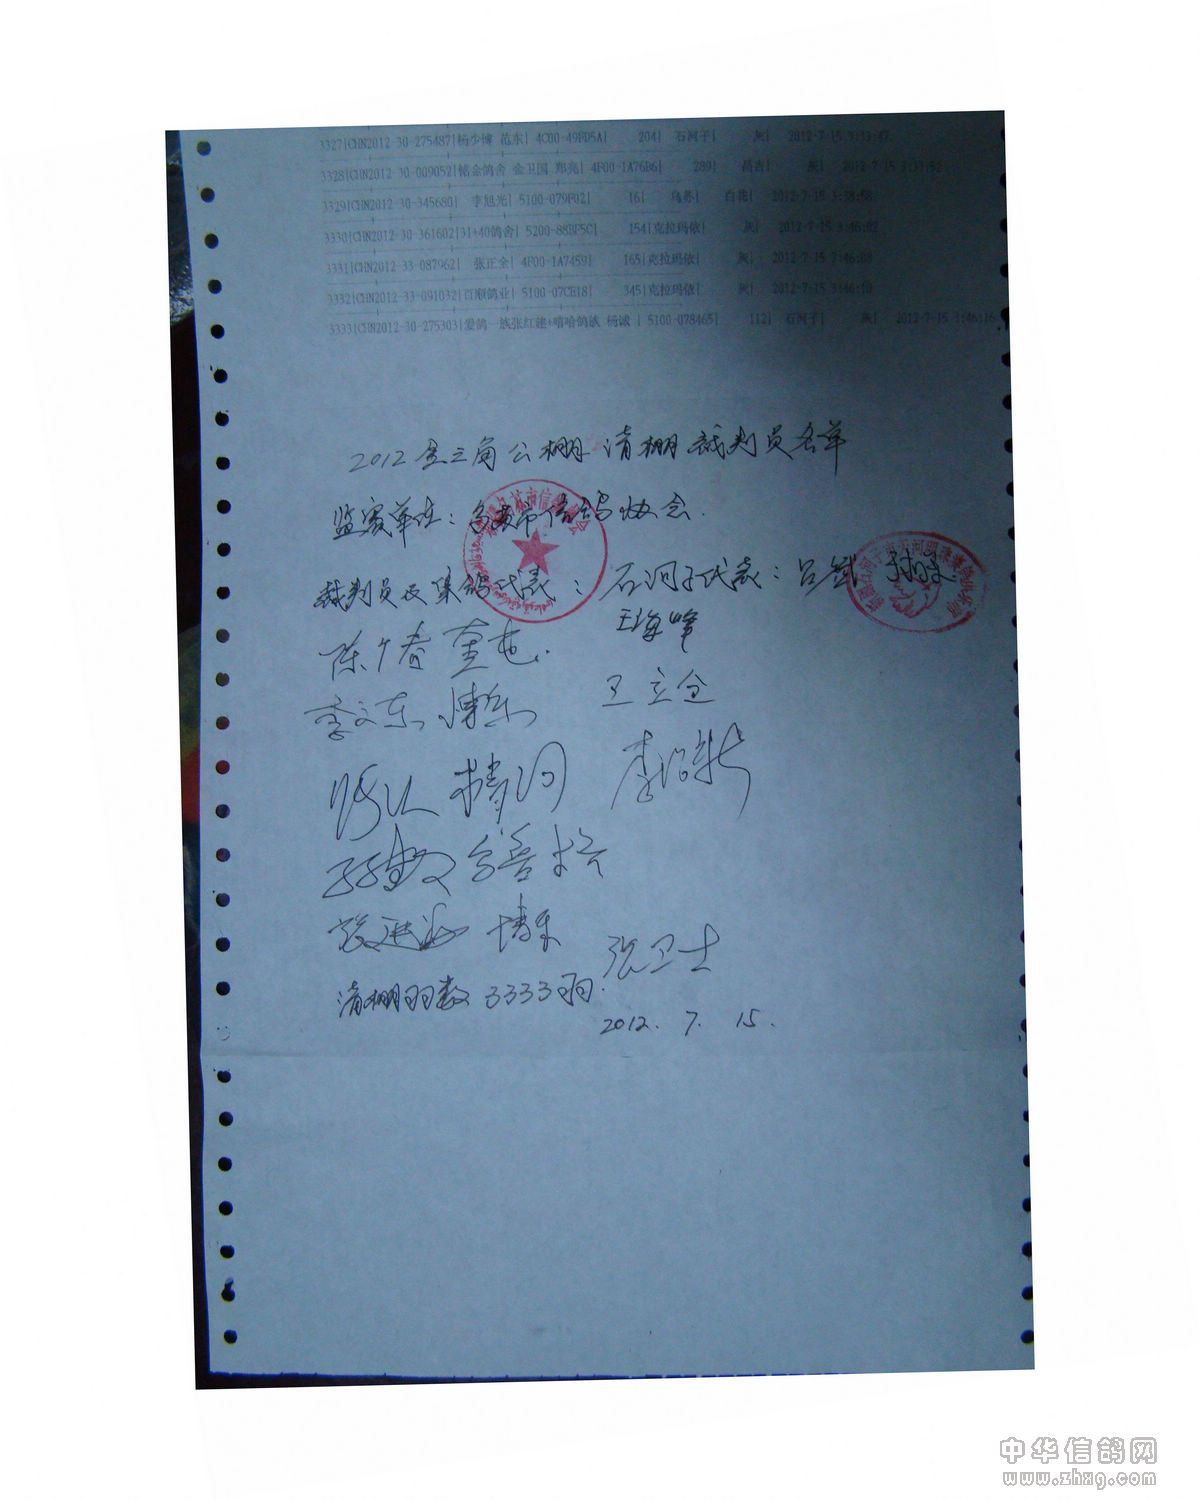 3327|CHN2012-30-275487|杨少博 范东| 4C00-49FD5A| 204| 石河子| 灰| 2012-7-15 3:33:47
3328|CHN2012-30-009052|铭金鸽舍 金卫国 郑亮| 4F00-1A76B6| 289| 昌吉| 灰| 2012-7-15
3329|CHN2012-30-345680| 李旭光| 5100-079F02| 16| 乌苏| 白花| 2012-7-15 3:38:58
3330|CHN2012-30-361602|31+40鸽舍| 5200-88BF5C| 154|克拉玛依| 灰| 2012-7-15 3:46:02
3331|CHN2012-33-087962| 张正全| 4F00-1A7459| 165|克拉玛依| 灰| 2012-7-15 3:46:08
3332|CHN2012-33-091032|百顺鸽业| 5100-07CE18| 345|克拉玛依| 灰| 2012-7-15 3:46:10
3333|CHN2012-30-275303|爱鸽一族张红建+嘻哈鸽族 杨诚 | 5100-078465| 112| 石河子| 灰| 2012-7-15 3:46:16
2012金三角公棚清棚裁判员名单
监赛单位：乌苏市信鸽协会.
裁判员及集鸽代表： 石河子代表：吕斌
王海峰
陈广春 奎屯.
李文东 博乐 卫立仓
精河
博乐 张卫士
清棚羽数 3333羽.
2012. 7. 15.
中华信鸽网
www.zhxg.com